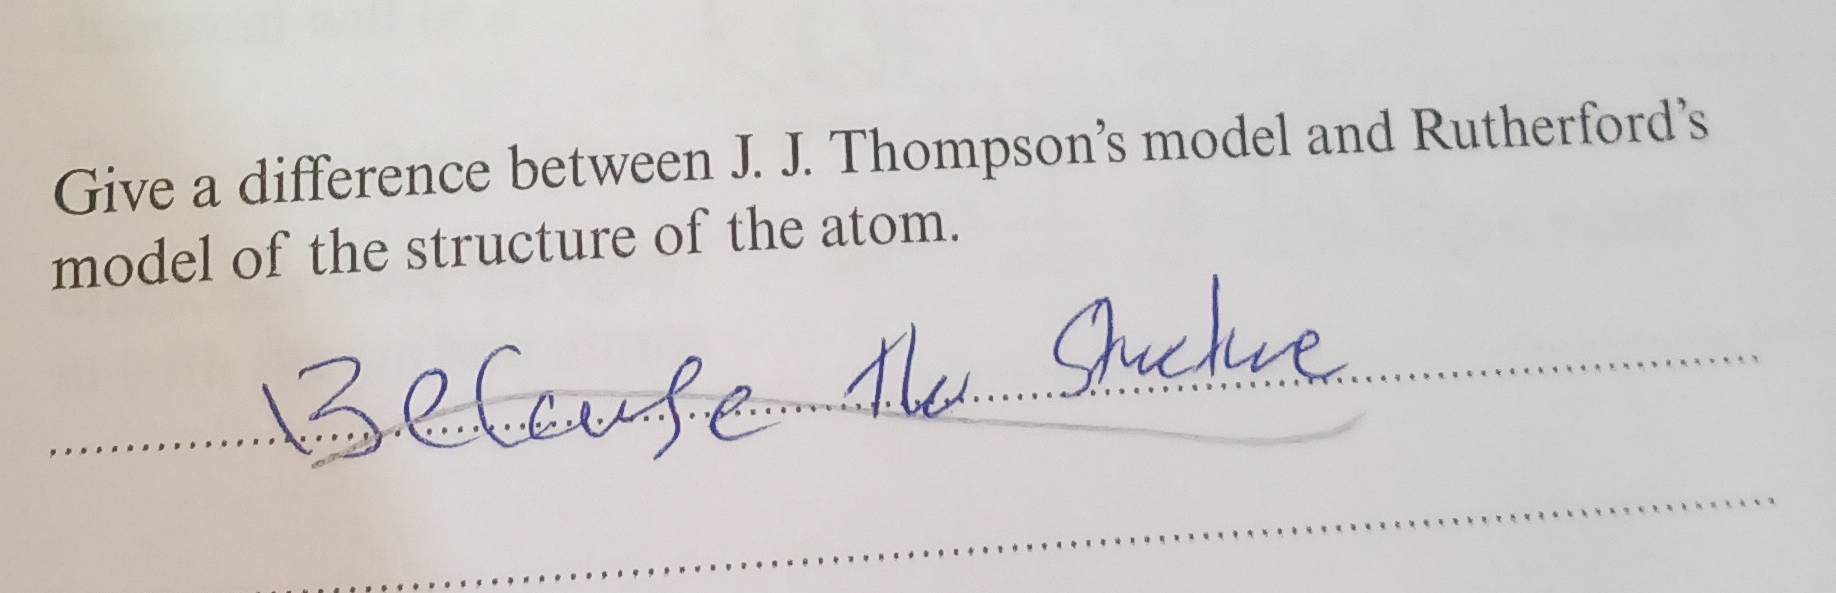 Give a difference between J. J. Thompson's model and Rutherford's
model of the structure of the atom.
Because the Structure